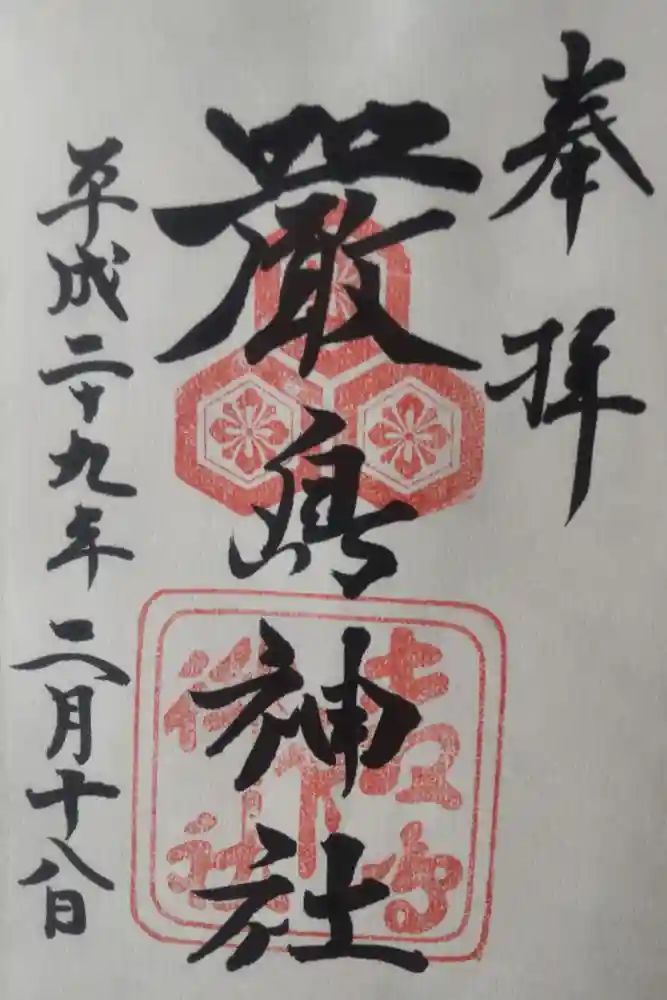 奉拝
嚴島神社
平成二十九年二月十八日